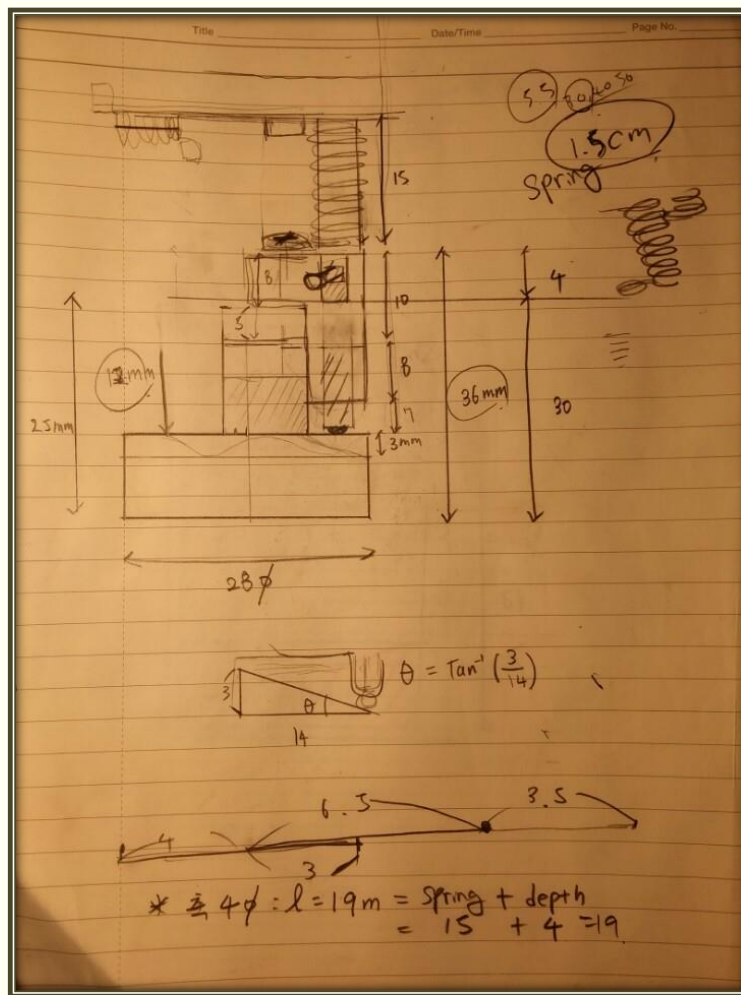 Title Date/Time Page No.
5.5 30 40 50
1.5cm
spring
15
8
10
4
5
8
mm
36mm
30
25mm
7
3mm
28φ
3
θ
14
θ = Tan⁻¹ (3/14)
6.5
3.5
4
3
* 4φ : l = 19m = spring + depth
= 15 + 4 = 19